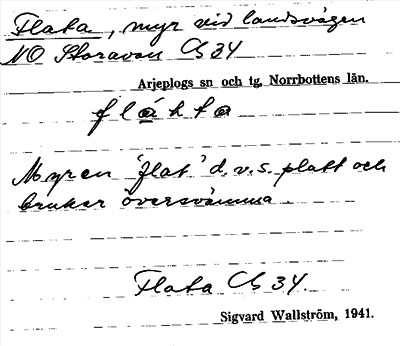 Flata, myr vid landsvägen
NO Storavan Cb 34
Arjeplogs sn och tg, Norrbottens län.
flahta
Myren "flat" d.v.s. platt och
brukar översvämma.
Flata Cb 34.
Sigvard Wallström, 1941.